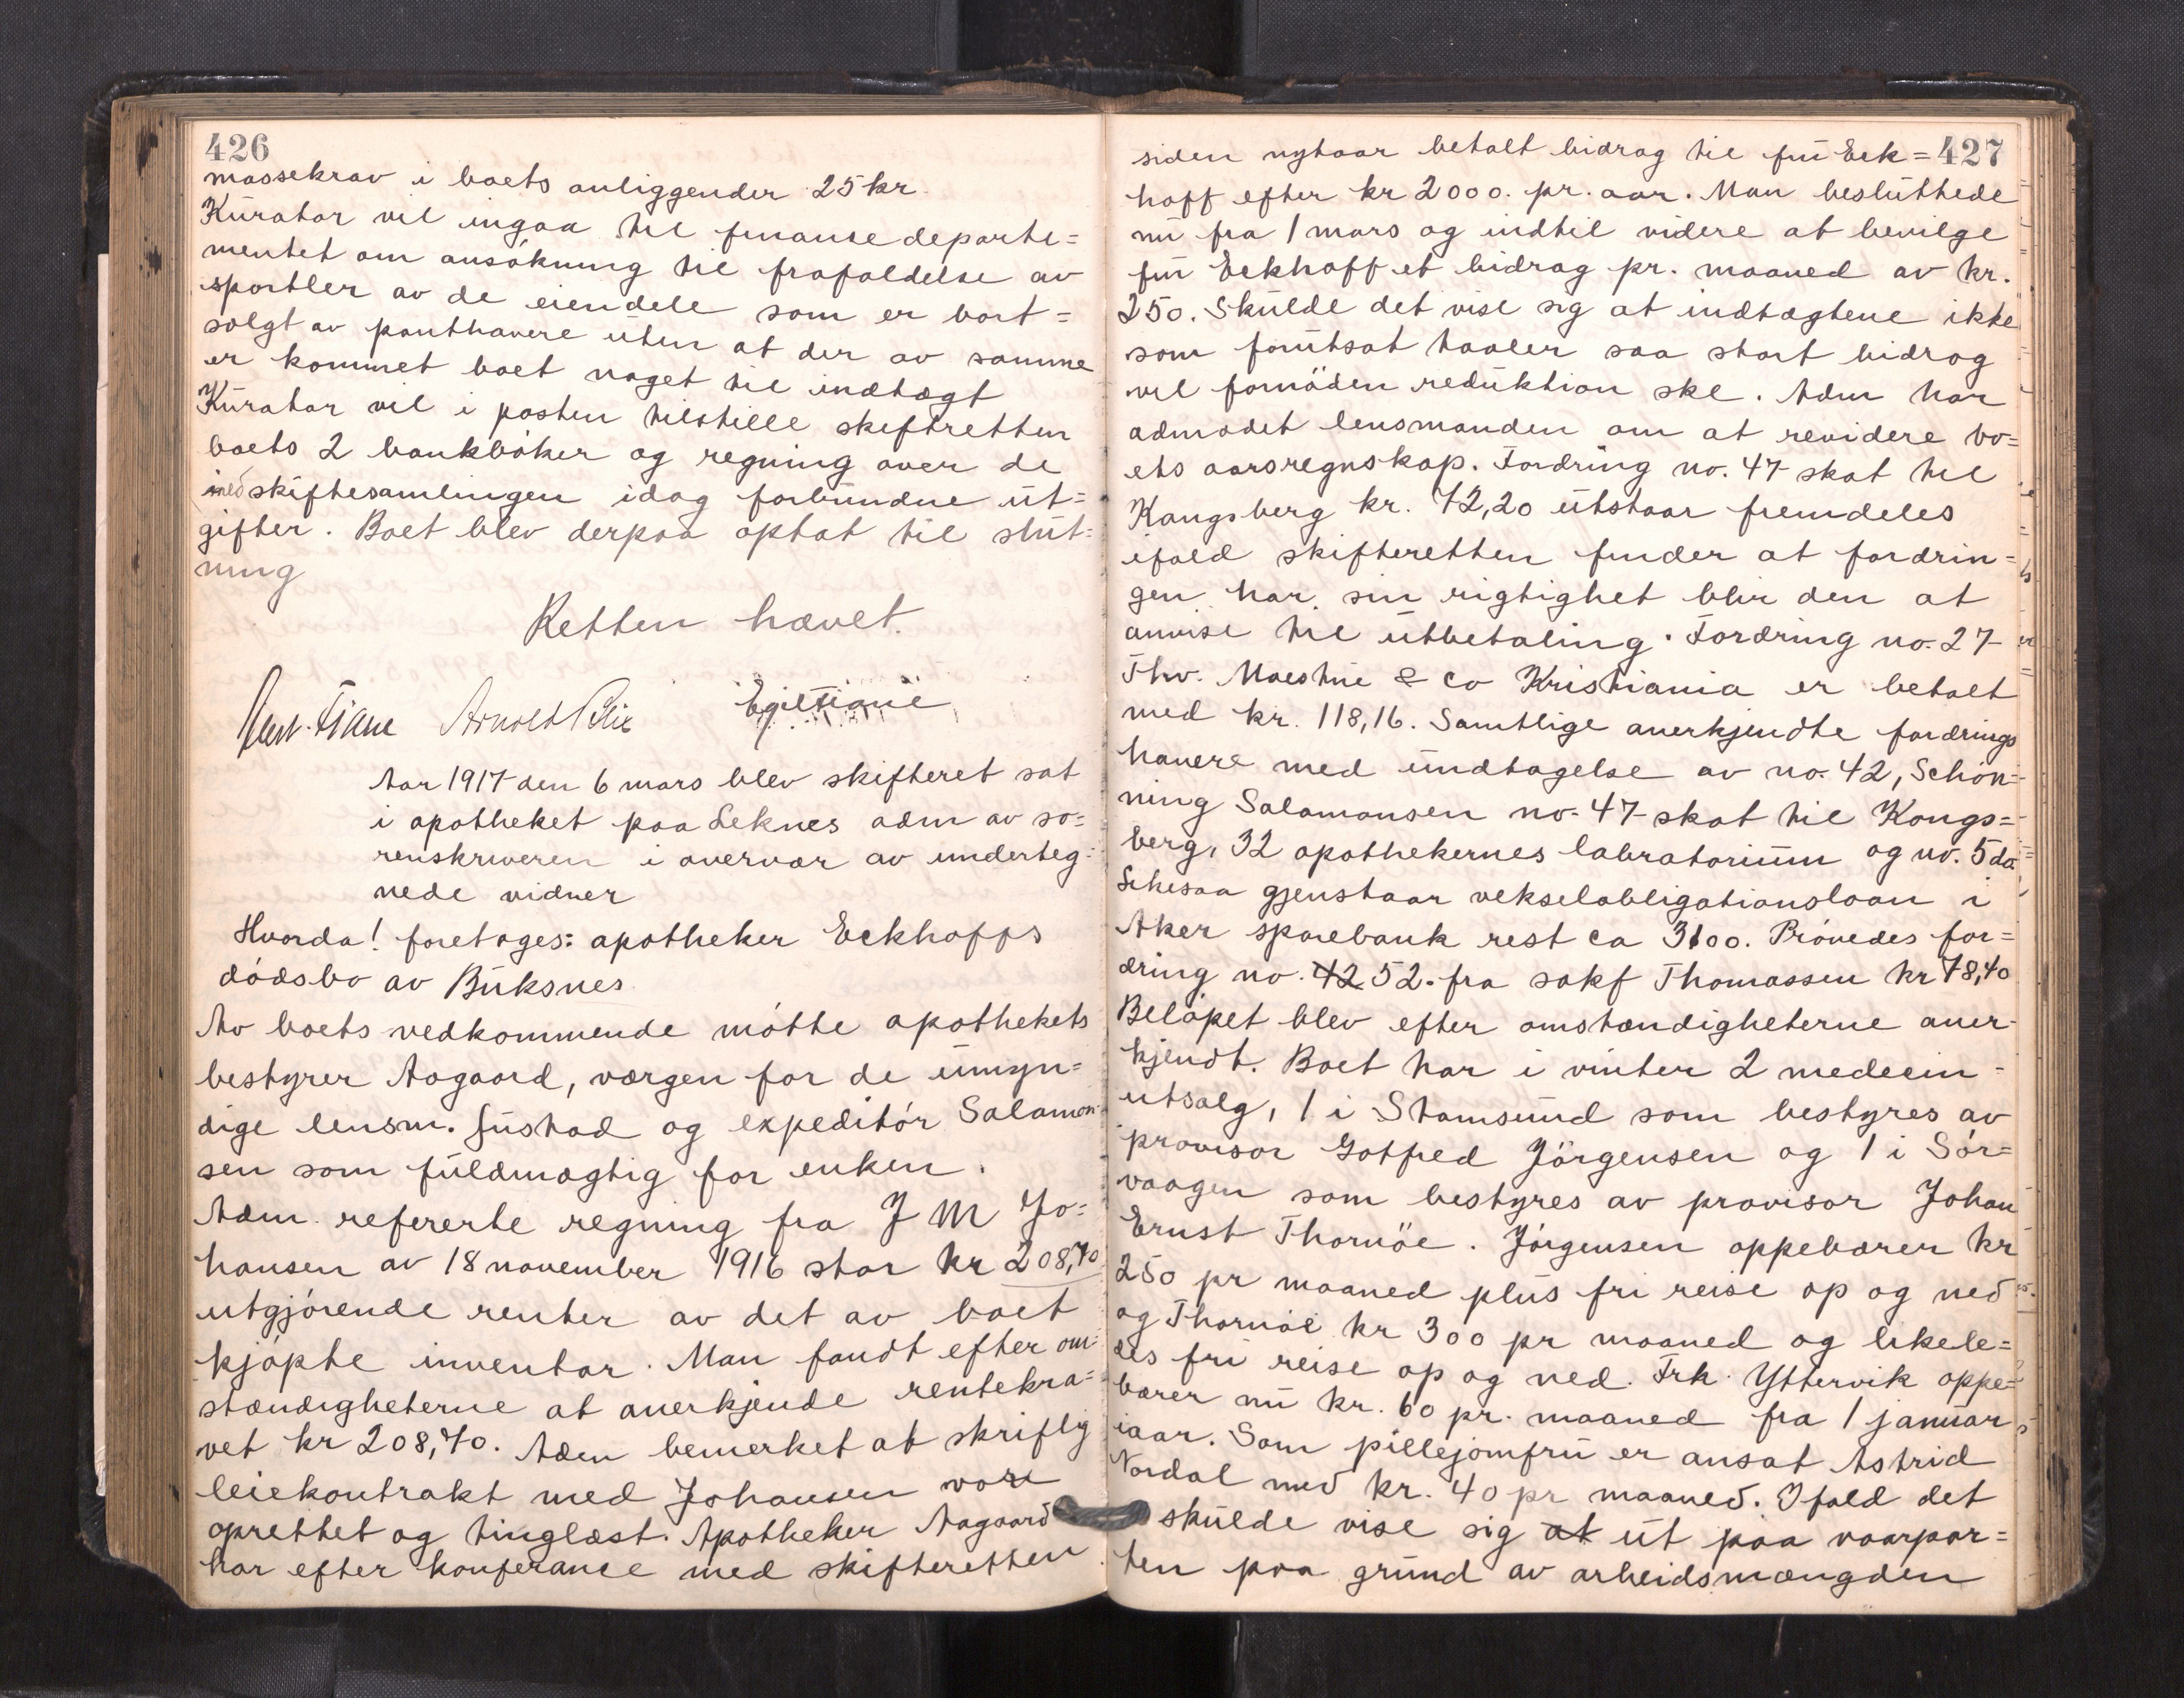 426
massekrav i boets anliggender 25 kr.
Kurator vil ingaa til finansedeparte=
mentet om ansøkning til frafaldelse av
sportler av de eiendele som er bort=
solgt av panthavere uten at der av samme
er kommet boet noget til indtægt
Kurator vil i posten tilstille skiftretten
boets 2 bankbøker og regning over de
med skiftesamlingen idag forbundne ut=
gifter. Boet blev derpaa optat til slut=
ning
Retten hævet.
Tiane Arnold Egil Tiane
Aar 1917 den 6 mars blev skifteret sat
i apotheket paa Leknes adm av so=
renskriveren i overvær av underteg=
nede vidner
Hvorda! foretages: apotheker Eckhoffs
dødsbo av Buksnes
Av boets vedkommende møtte apothekets
bestyrer Aagaard, værgen for de umyn=
dige lensm. Sustad og expeditør Salamon
sen som fuldmægtig for enken.
Adm. refererte regning fra J M Jo=
hansen av 18 november 1916 stor kr 208,70
utgjørende renter av det av boet
kjøpte inventar. Man fandt efter om=
stændigheterne at anerkjende rentekra=
vet kr 208,70. Adm bemerket at skriflig
leiekontrakt med Johansen var
oprettet og tinglæst. Apotheker Aagaard
har efter konferance med skifteretten
427
siden nytaar betalt bidrag til fru Eck=
hoff efter kr 2000. pr. aar. Man besluttede
nu fra 1 mars og indtil videre at bevilge
fru Eckhoff et bidrag pr. maaned av kr.
250. Skulde det vise sig at indtægtene ikke
som forutsat taaler saa stort bidrag
vil fornøden reduktion ske. Adm har
admodet lensmanden om at revidere bo=
ets aarsregnskap. Fordring no. 47 skat til
Kongsberg kr. 72,20 utstaar fremdeles
ifald skifteretten finder at fordrin=
gen har sin rigtighet blir den at
anvise til utbetaling. Fordring no. 27
Thv. Moestue & Co Kristiania er betalt
med kr. 118,16. Samtlige anerkjendte fordrings
havere med undtagelse av no. 42, Schøn=
ning Salamonsen no. 47 skat til Kongs=
berg, 32 apothekernes labratorium og no. 5 do
gjenstaar vekselobligationslaan i
Aker sparebank rest ca 3100. Prøvedes for=
dring no. 42 52. fra sakf Thomassen kr 78,40
Beløpet blev efter omstændigheterne aner=
kjendt. Boet har i vinter 2 medecin=
utsalg, 1 i Stamsund som bestyres av
provisor Gotfred Jörgensen og 1 i Sør=
vaagen som bestyres av provisor Johan
Ernst Thornöe. Jörgensen oppebærer kr
250 pr maaned plus fri reise op og ned
og Thornöe kr 300 pr maaned og likele=
des fri reise op og ned. Frk. Yttervik oppe=
bærer nu kr. 60 pr. maaned fra 1 januar
iaar. Som pillejomfru er ansat Astrid
Nordal med kr. 40 pr maaned. Ifald det
skulde vise sig at ut paa vaarpar=
ten paa grund av arbeidsmængden